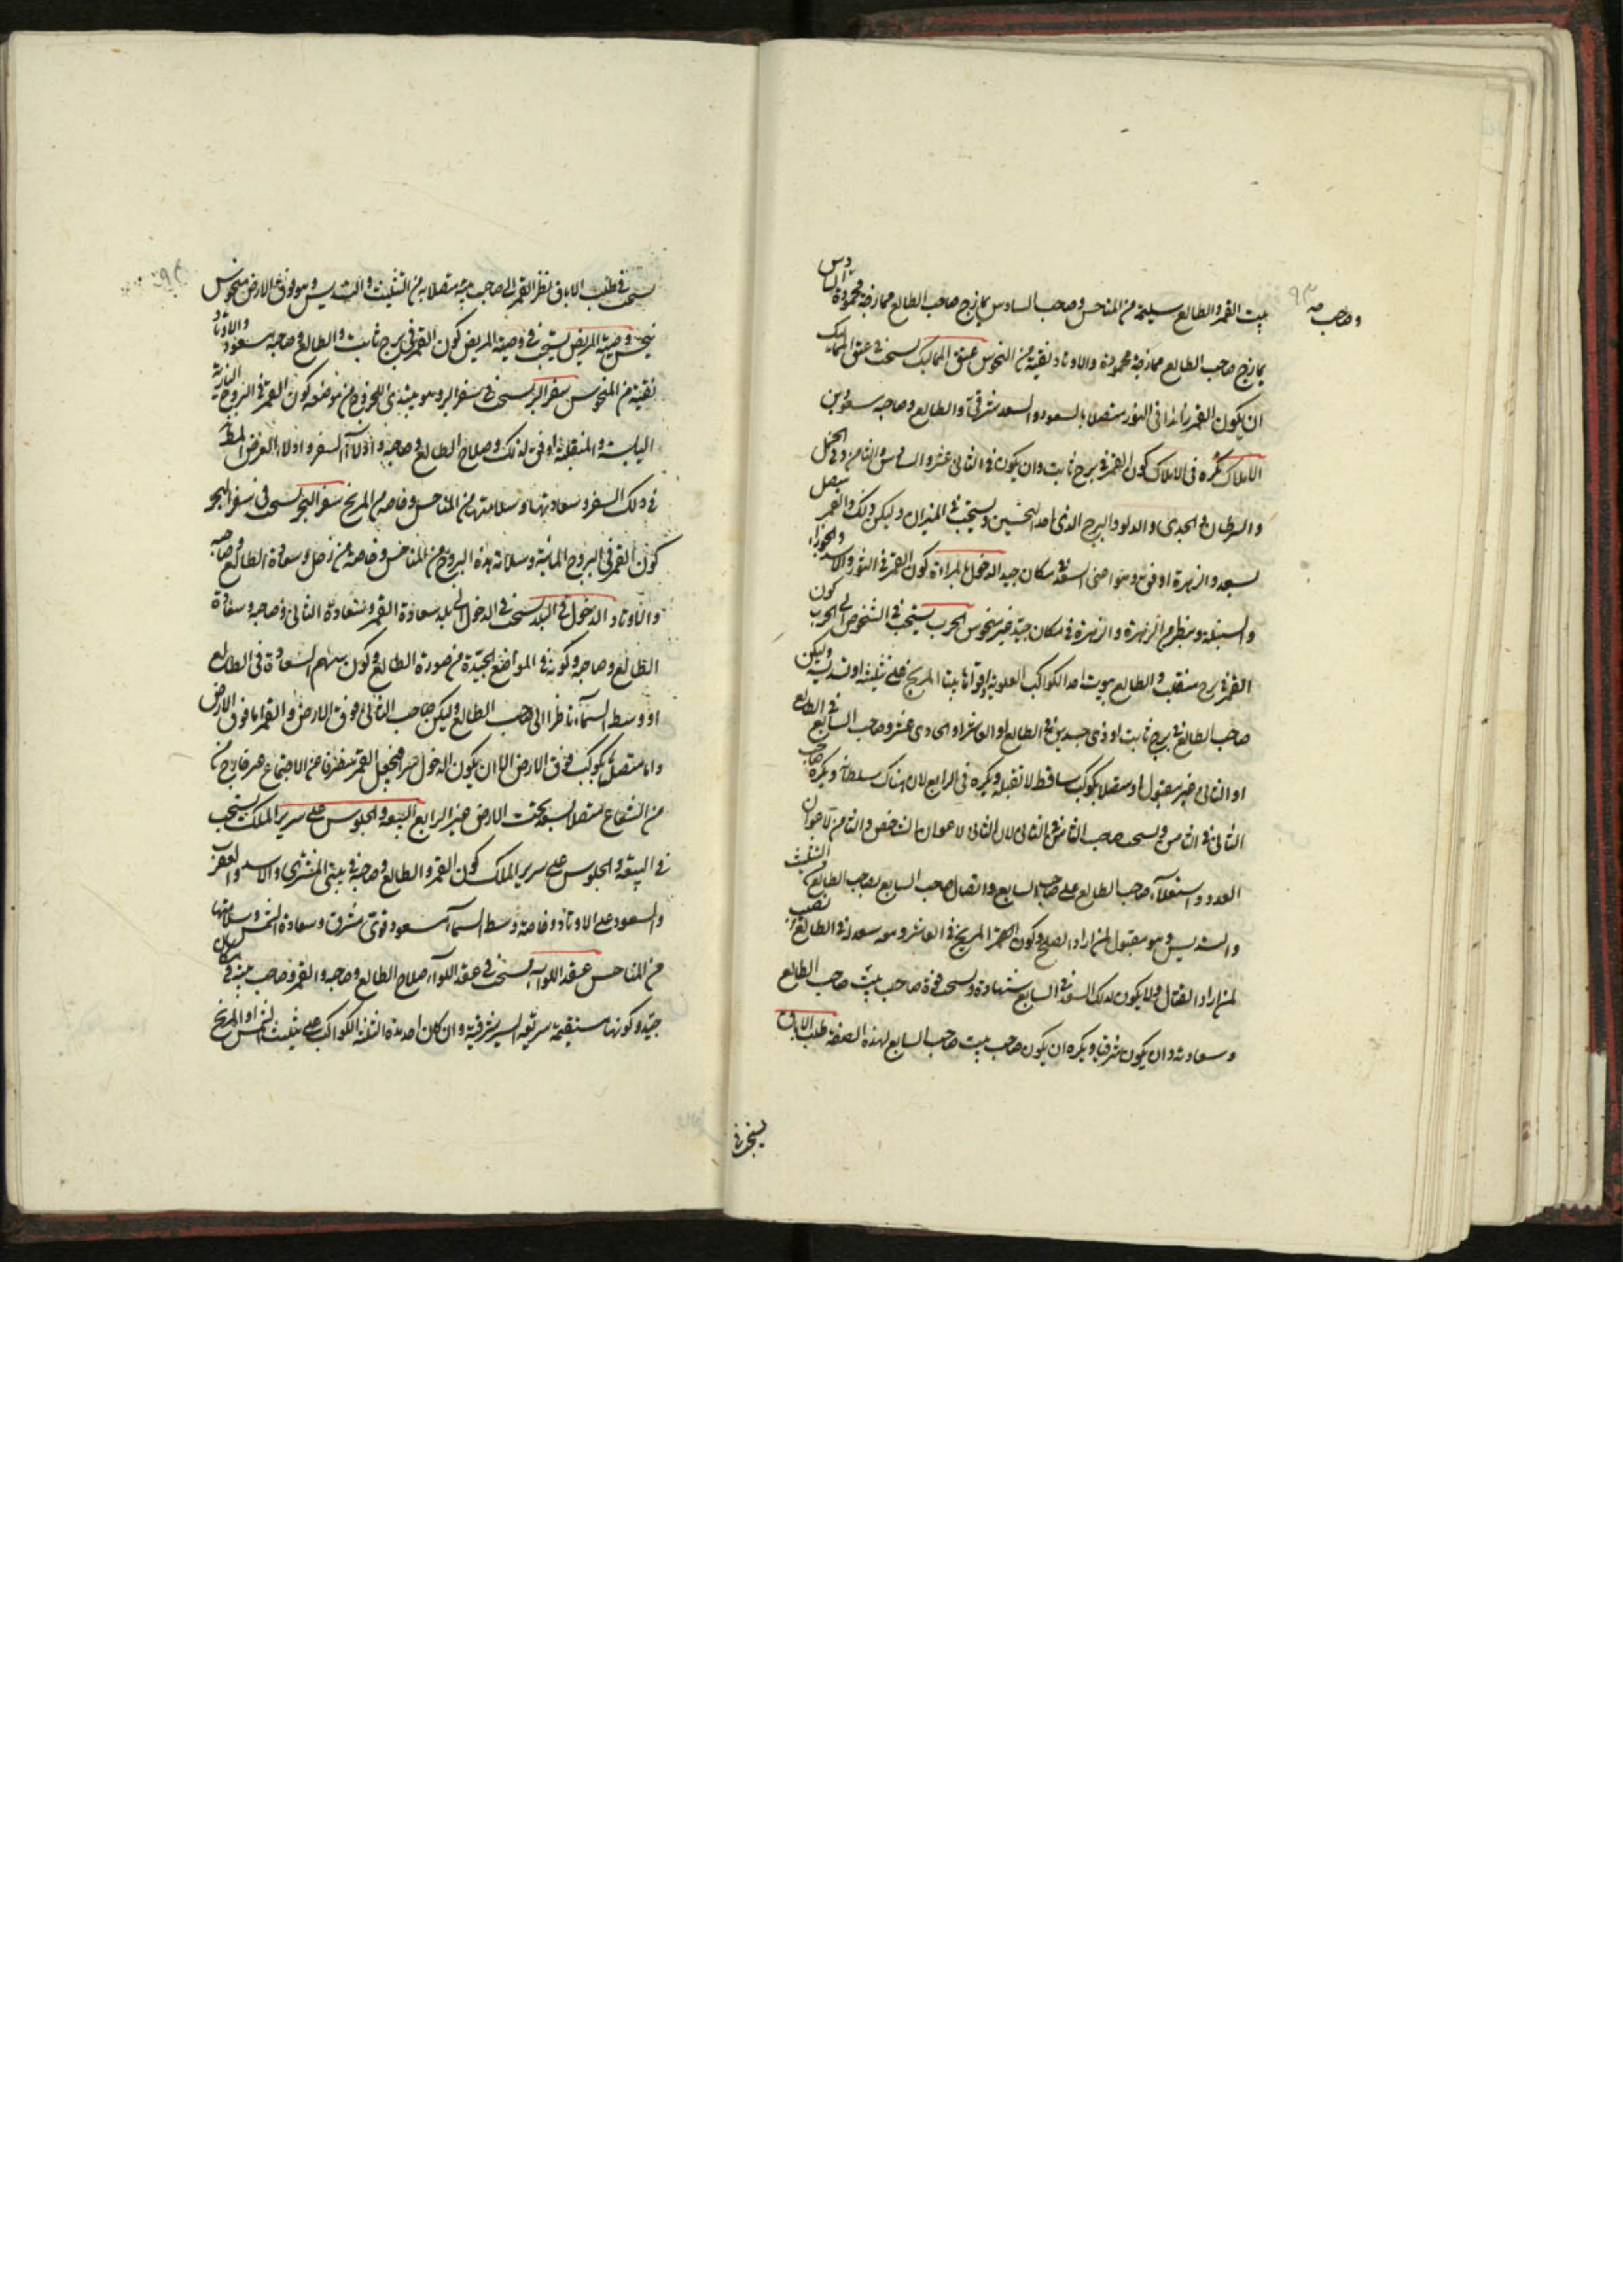 وصاحب
٩٣
بيت القمر والطالع سليمة من المناحس وصاحب السادس يمازج صاحب الطالع ممازجة محمودة السادس
يمازج صاحب الطالع ممازجة محمودة والاوتاد نقية من النحوس عتق المماليك يستحب في عتق المماليك
ان يكون القمر زائدا في النور متصلا بالسعود والسعد شرقيا والطالع وصاحبه مسعودين
الاملاك يكره في الاملاك كون القمر في برج ثابت وان يكون في الثاني عشر والسادس والثامن وفي الحمل
والسرطان والجدي والدلو والبرج الذي احد النحسين ويستحب في الميزان وليكن والقمر متصل
بسعد والزهرة اوفق وهو اعني السعد في مكان جيد الدخول بالمراة كون القمر في الثور والاسد والجوزاء
والسنبلة وينظر من الزهرة والزهرة في مكان جيد غير منحوس الحرب يستحب في الشخوص الى الحرب كون
القمر في برج منقلب والطالع بيوت احد الكواكب العلوية واقواها بيتا المريخ على تثليثه او تسديسه وليكن
صاحب الطالع في برج ثابت او ذي جسدين في الطالع او العاشر او الحادي عشر وصاحب السابع في الطالع
او الثاني غير مقبول او متصلا بكوكب ساقط لا يقبله ويكره في الرابع لان هناك سلطانه ويكره صاحب
الثاني في الثامن ويستحب صاحب الثامن في الثاني لان الثاني لاعوان الشاخص والثامن لاعوان
العدو واستعلاء صاحب الطالع على صاحب السابع واتصال صاحب السابع بصاحب الطالع من التثليث
والتسديس وهو مقبول لمن اراد الصلح وكون المريخ في العاشر ومعه سعد في الطالع
لمن اراد القتال ولا يكون لذلك السعد في السابع شهادة ويستحب قوة صاحب بيت صاحب الطالع
وسعادته وان يكون شرقيا ويكره ان يكون صاحب بيت صاحب السابع لهذه الصفة طلب الاباق
يستحب في
يستحب في طلب الاباق نظر القمر الى صاحب بيته متصلا به من التثليث والتسديس وهو فوق الارض منحوس
بنحس وصية المريض يستحب في وصية المريض كون القمر في برج ثابت والطالع وصاحبه مسعود والاوتاد
نقية من النحوس سفر البر يستحب في سفر البر وهو مبتدئ الخروج من موضعه كون القمر في البروج النارية
اليابسة والمنقلبة اوفق لذلك وصلاح الطالع وصاحبه وادلاء السفر وادلاء الغرض المطلوب
في ذلك السفر وسعادتها وسلامتها من المناحس وخاصة من المريخ سفر البحر يستحب في سفر البحر
كون القمر في البروج المائية وسلامة هذه البروج من المناحس وخاصة من زحل وسعادة الطالع وصاحبه
والاوتاد الدخول في البلد يستحب في الدخول الى البلد سعادة القمر وسعادة الثاني وصاحبه وسعادة
الطالع وصاحبه وكونه في المواضع الجيدة من صورة الطالع وكون سهم السعادة في الطالع
او وسط السماء ناظرا الى صاحب الطالع وليكن صاحب الثاني فوق الارض والقمر اما فوق الارض
واما متصل بكوكب فوق الارض الا ان يكون الدخول سرا فيجعل القمر منصرفا عن الاجتماع
من الشعاع متصلا بسعد تحت الارض غير الرابع البيعة والجلوس على سرير الملك يستحب
في البيعة والجلوس على سرير الملك كون القمر والطالع وصاحبه في بيتي المشتري والاسد والعقرب
والسعود على الاوتاد وخاصة وسط السماء مسعود قوي مشرق وسعادة الشمس وسلامتها
من المناحس عقد اللواء يستحب في عقد اللواء صلاح الطالع وصاحبه والقمر وصاحب بيته في مكان
جيد وكونها مستقيمة سريعة السير شرقية وان كان احد هذه الثلثة الكواكب على تثليث الشمس او المريخ